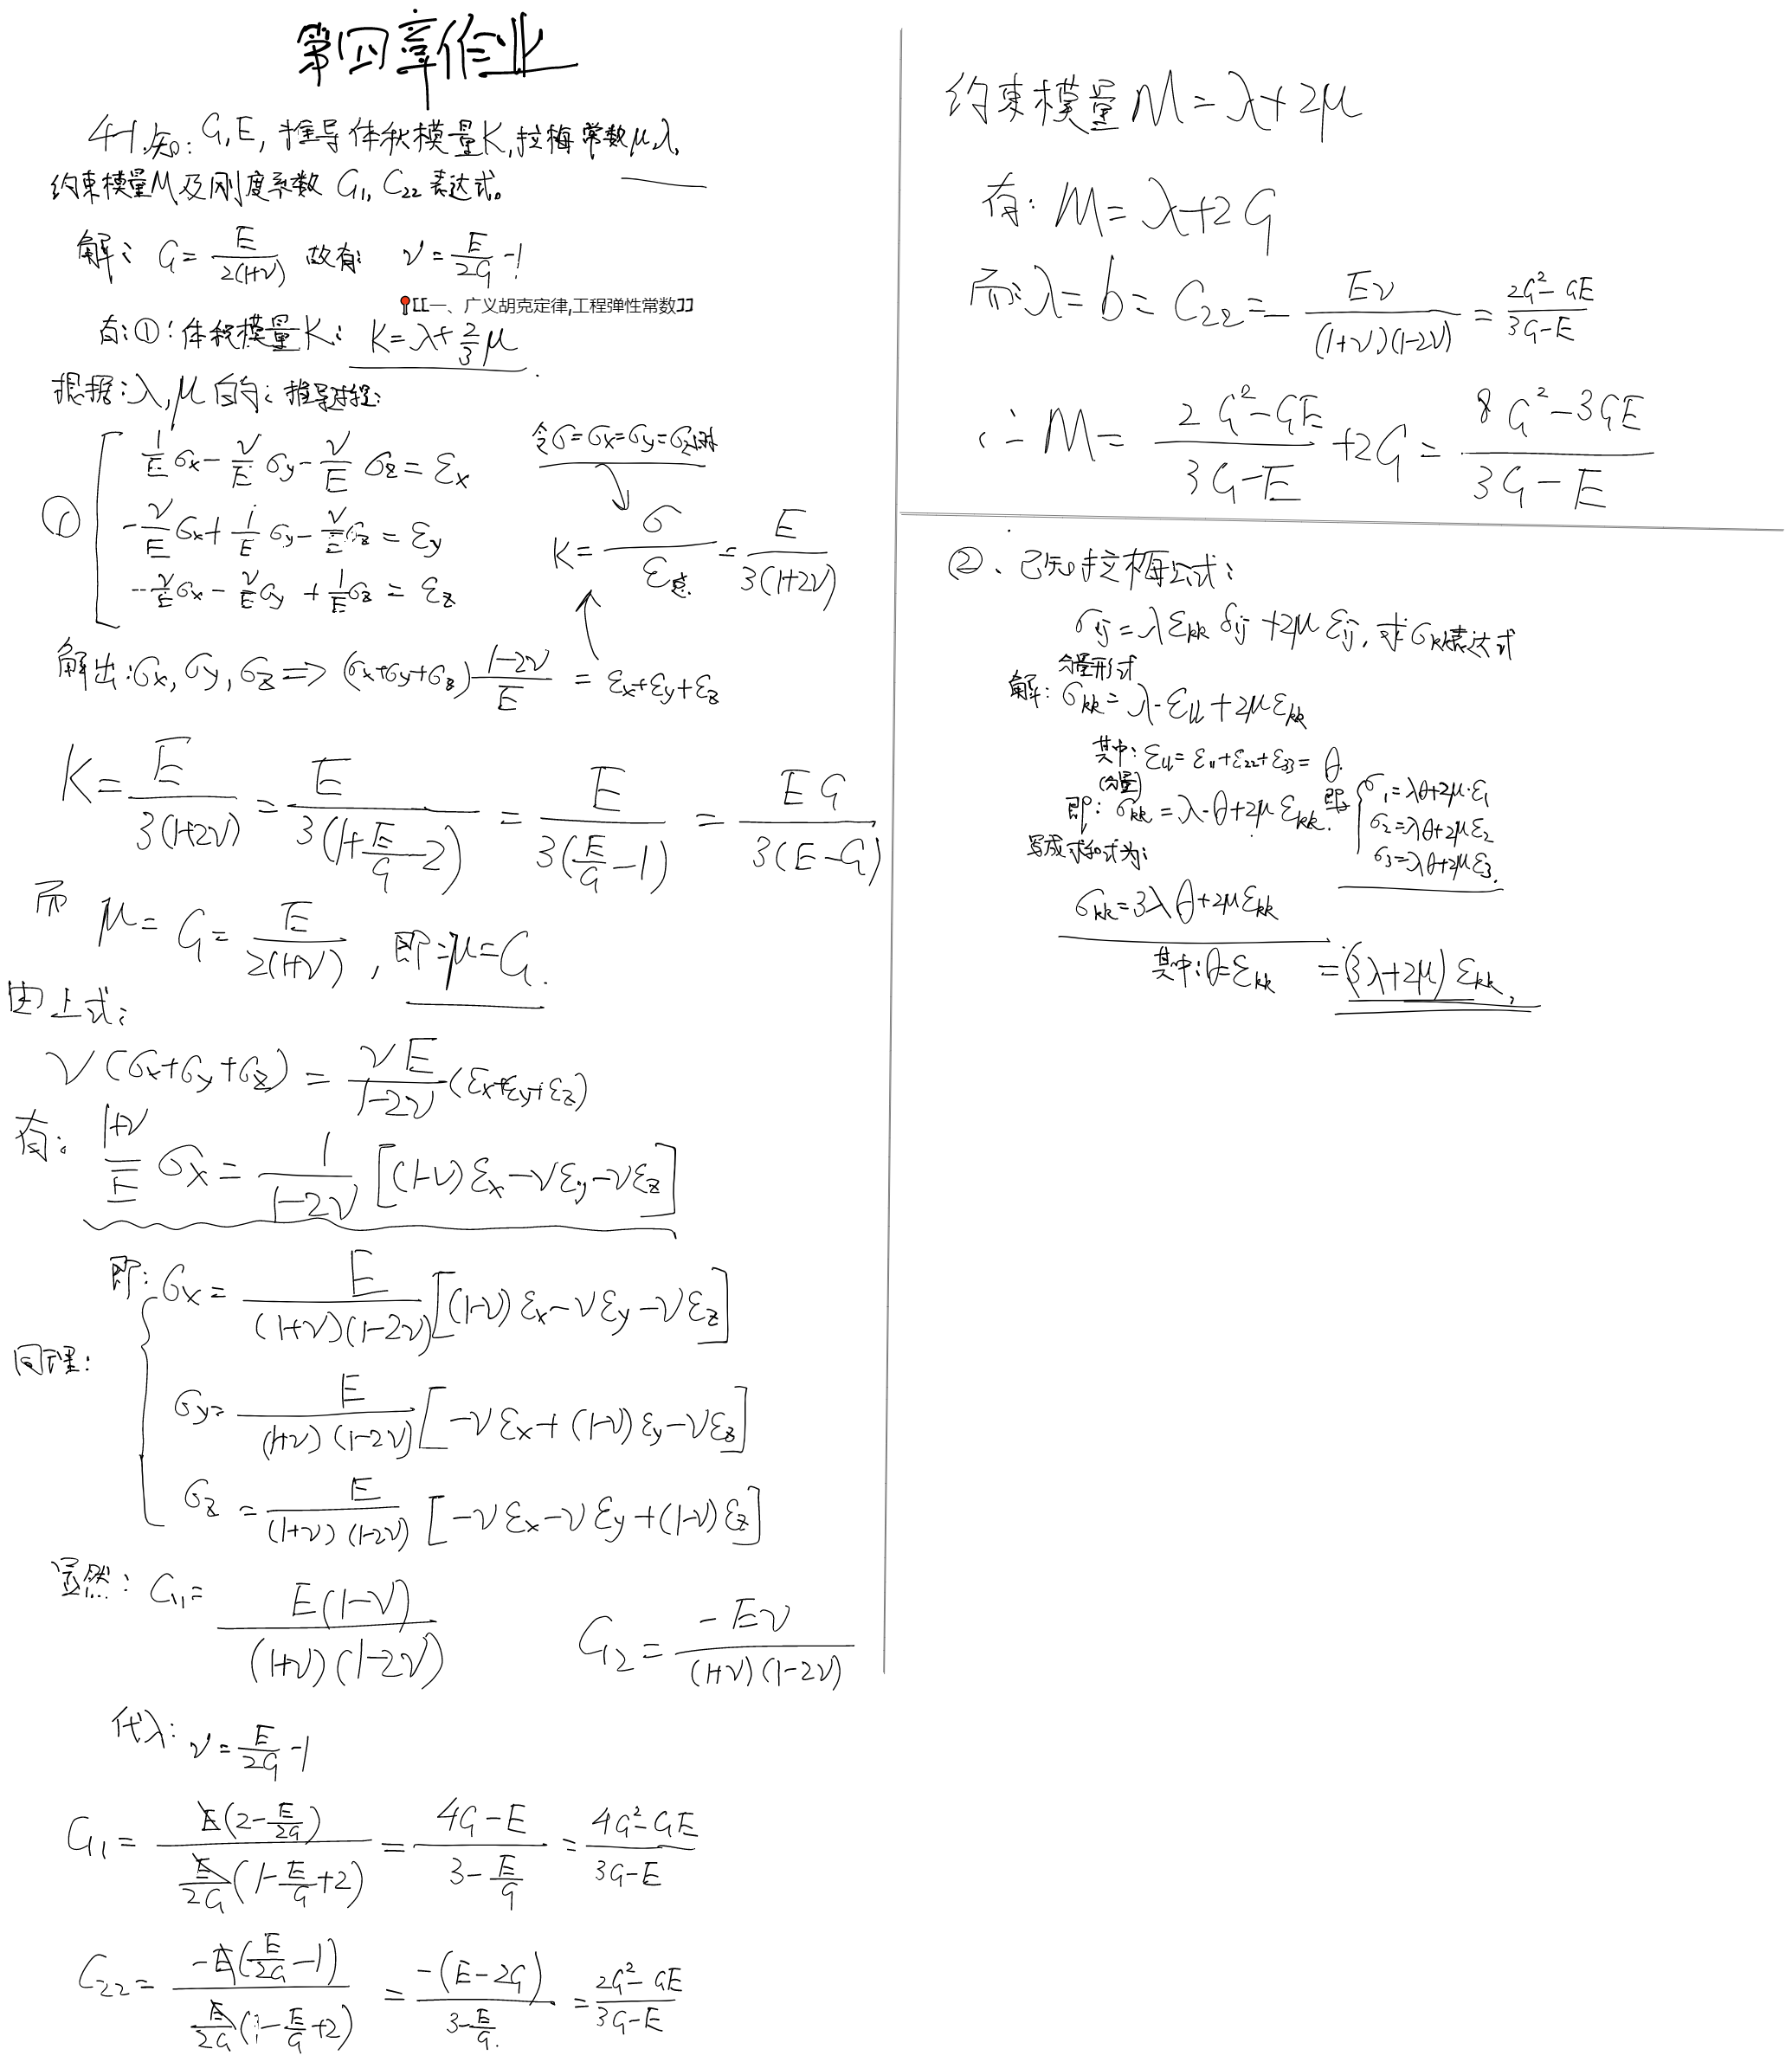 第四章作业
4-1.知: G,E, 推导体积模量K,拉梅常数μ,λ,
约束模量M及刚度系数 C11, C22 表达式。
解: G = E/2(1+ν) 故有: ν = E/2G - 1
[[一、广义胡克定律,工程弹性常数]]
有:①: 体积模量K: K = λ + 2/3 μ
根据: λ, μ 的: 推导过程:
令σ=σx=σy=σz时
① 1/E σx - ν/E σy - ν/E σz = εx
-ν/E σx + 1/E σy - ν/E σz = εy
-ν/E σx - ν/E σy + 1/E σz = εz
K = σ/ε总 = E/3(1+2ν)
解出: σx, σy, σz => (σx+σy+σz) 1-2ν/E = εx+εy+εz
K = E/3(1+2ν) = E/3(1+E/G-2) = E/3(E/G-1) = EG/3(E-G)
而 μ = G = E/2(1+ν) , 即: μ=G.
由上式:
ν(σx+σy+σz) = νE/1-2ν (εx+εy+εz)
有: 1+ν/E σx = 1/1-2ν [(1-ν)εx-νεy-νεz]
即: σx = E/(1+ν)(1-2ν) [(1-ν)εx-νεy-νεz]
同理:
σy = E/(1+ν)(1-2ν) [-νεx+(1-ν)εy-νεz]
σz = E/(1+ν)(1-2ν) [-νεx-νεy+(1-ν)εz]
显然: C11 = E(1-ν)/(1+ν)(1-2ν) C12 = -Eν/(1+ν)(1-2ν)
代入: ν = E/2G - 1
C11 = E(2-E/2G)/E/2G(1-E/G+2) = 4G-E/3-E/G = 4G²-GE/3G-E
C22 = -E(E/2G-1)/E/2G(1-E/G+2) = -(E-2G)/3-E/G. = 2G²-GE/3G-E
约束模量 M = λ+2μ
有: M = λ+2G
而: λ = b = C22 = - Eν/(1+ν)(1-2ν) = 2G²-GE/3G-E
∴ M = 2G²-GE/3G-E + 2G = 8G²-3GE/3G-E
②、已知拉梅公式:
σij = λεkk δij + 2μ εij, 求σkk表达式
分量形式
解: σkk = λ·εll + 2μεkk
其中: εll = ε11+ε22+ε33 = θ.
(分量)
即: σkk = λ·θ+2μ εkk. 即
σ1 = λθ+2μ·ε1
σ2 = λθ+2με2
σ3 = λθ+2με3.
写成求和式为:
σkk = 3λθ+2μεkk
其中: θ=εkk = (3λ+2μ) εkk,